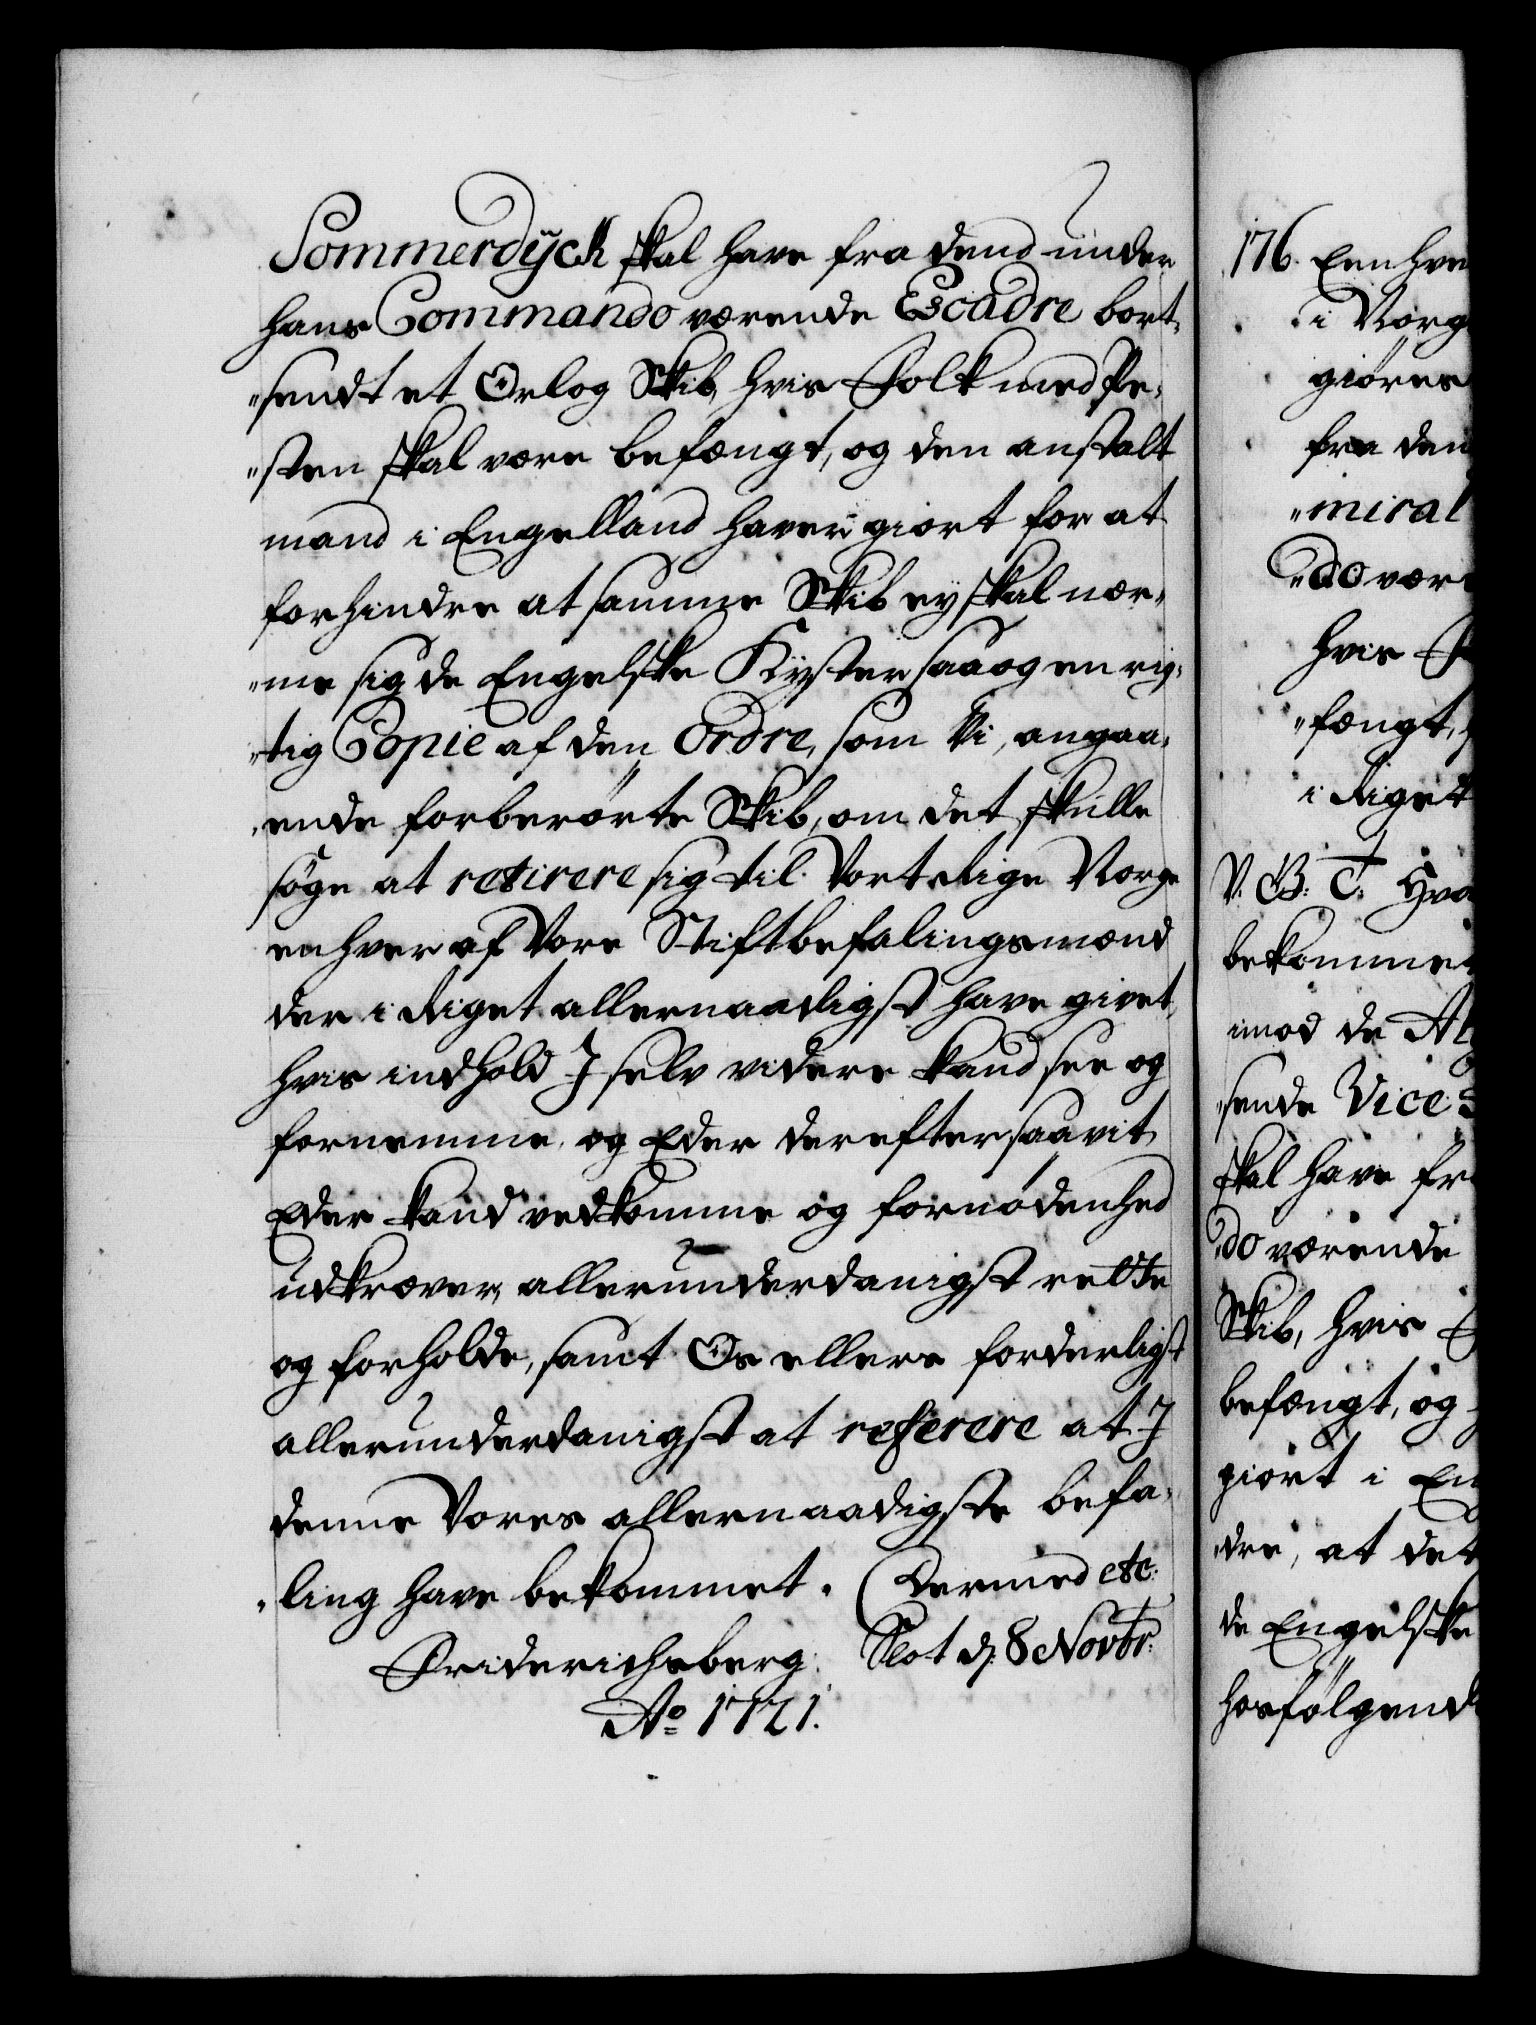 Sommerdÿck skal have fra dend under
hans Commando værende Escadre bort-
"sendt et Orlog Skib, hvis Folk med Pe-
"sten skal være befængt, og den anstalt
mand i Engelland haver giort for at
forhindre at samme Skib ey skal nær-
"me sig de Engelske Kyster, saa og en rig-
"tig Copie af den Ordre, som Vi, angaa-
"ende forberørte Skib, om det skulle
søge at retirere sig til Vort Rige Norge
enhver af Vore Stiftbefalingsmænd
der i Riget allernaadigst have givet,
hvis indhold I selv videre kand see og
fornemme, og Eder derefter, saavit
Eder kand vedkomme og fornødenhed
udkræver, allerunderdanigst rette
og forholde, samt Os ellers forderligst
allerunderdanigst at referere at I
denne Vores allernaadigste befa-
"ling have bekommet. Dermed etc.
Friderichsberg Slot d. 8 Novbr:
Ao 1721.
176. Een hve
i Norg
giøres
fra den
"miral
"do vær
hvis F
"fængt,
i Riget
V. G. T. Hva
bekommet
imod de Al
"sende Vice S
skal have fr
"do værende
Skib, hvis F
befængt, og
giort i En
"dre, at det
de Engelske
hosfølgend